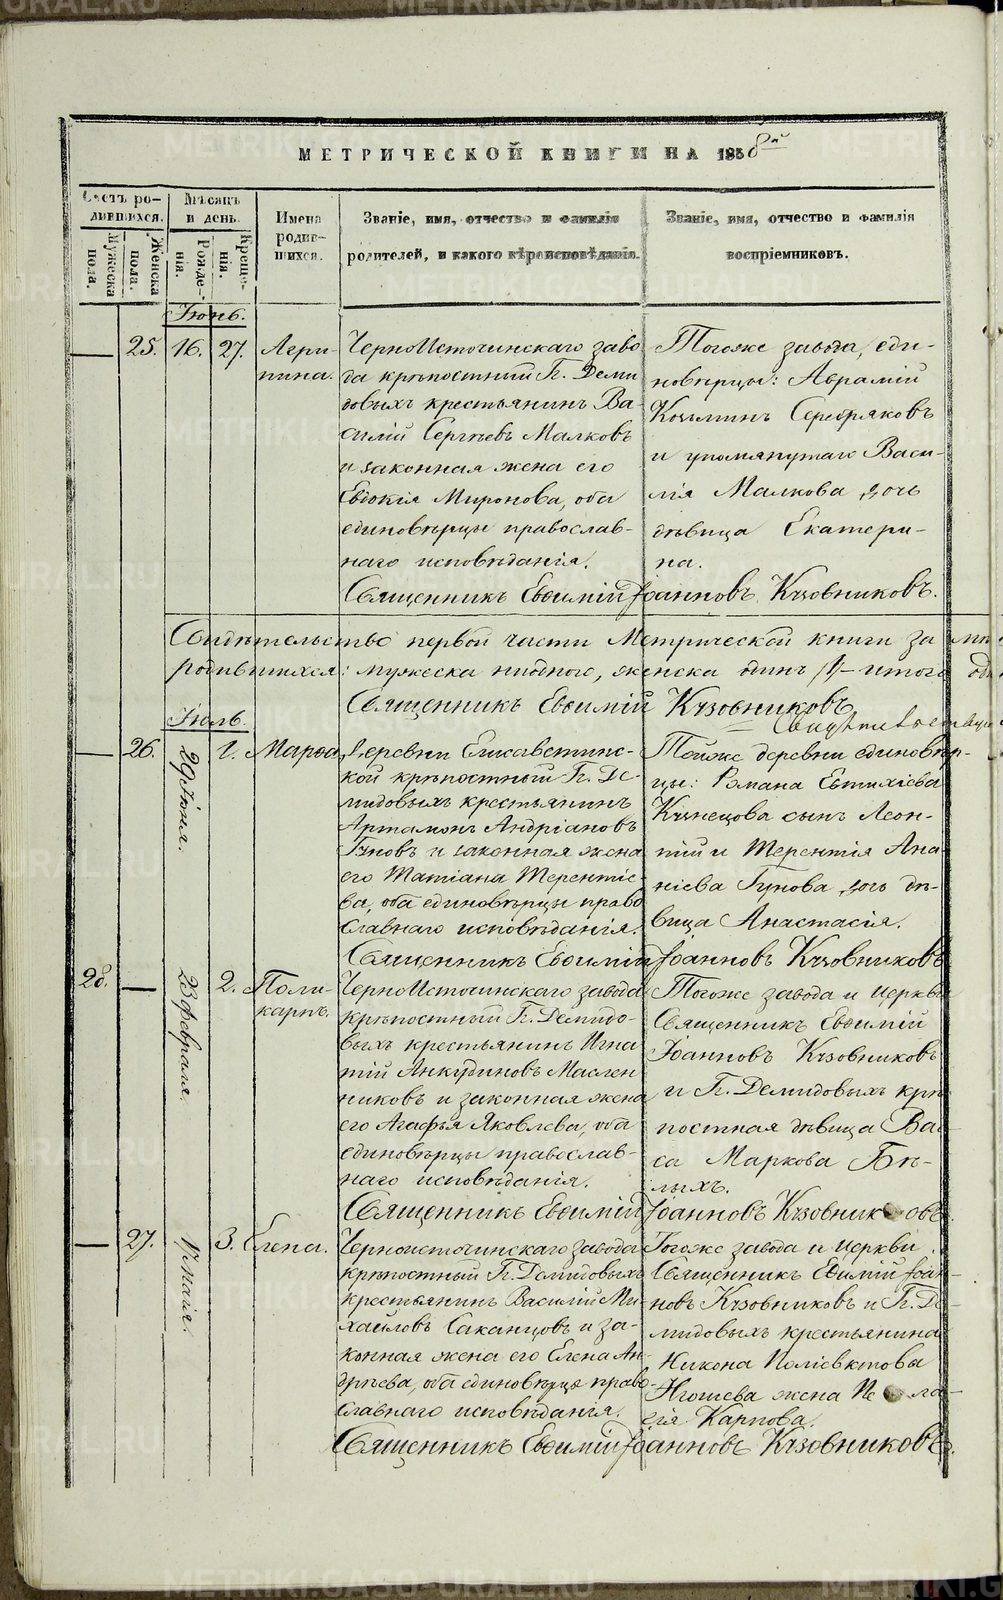 МЕТРИЧЕСКОЙ КНИГИ НА 1858й
Счетъ ро-
дившихся.
Мужеска
пола.
Женска
пола.
Мѣсяцъ
и день.
Рожде-
нія.
Креще-
нія.
Имена
родив-
шихся.
Званіе, имя, отчество и фамилія
родителей, и какого вѣроисповѣданія.
Званіе, имя, отчество и фамилія
воспріемниковъ.
Іюнь.
25. 16. 27. Агри-
пина.
ЧерноИсточинскаго заво
да крѣпостный Г. Деми
довыхъ крестьянинъ Ва
силій Сергѣевъ Малковъ
и законная жена его
Евдокія Миронова, оба
единовѣрцы православ-
наго исповѣданія.
Тогоже завода, еди-
новѣрцы: Аврамій
Козьминъ Серебряковъ
и упомянутаго Васи-
лія Малкова дочь
дѣвица Екатери-
на.
Священникъ Евѳимій Іоанновъ Кузовниковъ.
Свидѣтельство первой части Метрической книги за
родившихся: мужеска ниодного, женска одинъ /1/ – итого
Священникъ Евѳимій Кузовниковъ
Іюль.
26. 29 Іюня. 1. Марѳа.
Деревни Елисаветинс-
кой крѣпостный Г. Де-
мидовыхъ крестьянинъ
Артамонъ Андріановъ
Гуновъ и законная жена
его Татіана Терентіе-
ва, оба единовѣрцы право
славнаго исповѣданія.
Тойже деревни единовѣр-
цы: Романа Евтихіева
Кузнецова сынъ Леон-
тій и Терентія Ана-
ніева Гунова дочь дѣ-
вица Анастасія.
Священникъ Евѳимій Іоанновъ Кузовниковъ
28. 23 февраля. 2. Поли-
карпъ.
ЧерноИсточинскаго завода
крѣпостный Г. Демидо-
выхъ крестьянинъ Игна
тій Анкудиновъ Маслен
никовъ и законная жена
его Агафья Яковлева, оба
единовѣрцы православ-
наго исповѣданія.
Тогоже завода и церкви
Священникъ Евѳимій
Іоанновъ Кузовниковъ
и Г. Демидовыхъ крѣ
постная дѣвица Вас
са Маркова Бѣ-
лыхъ.
Священникъ Евѳимій Іоанновъ Кузовниковъ.
27. 17 маія. 3. Елена.
Черноисточинскаго завода
крѣпостный Г. Демидовыхъ
крестьянинъ Василій Ми-
хайловъ Саканцовъ и за-
конная жена его Елена Ан-
дреева, оба единовѣрцы право-
славнаго исповѣданія.
Тогоже завода и церкви
Священникъ Евѳимій Іоан-
новъ Кузовниковъ и Г. Де-
мидовыхъ крестьянина
Никона Поліевктова
жена Пелаге-
гія Карпова.
Священникъ Евѳимій Іоанновъ Кузовниковъ.